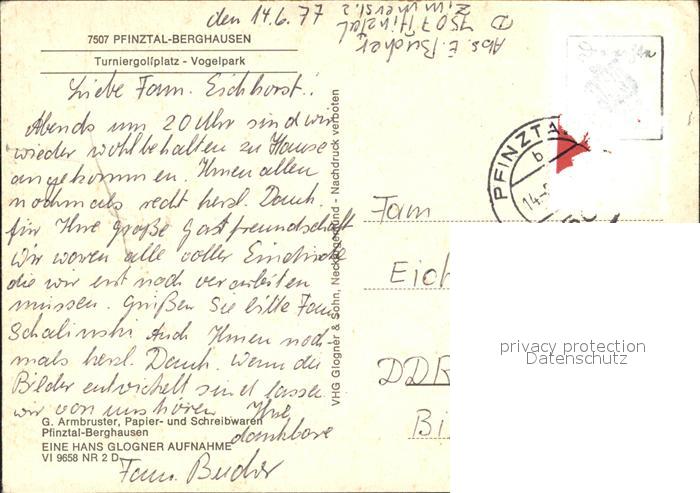 den 14.6.77
7507 PFINZTAL-BERGHAUSEN
Turniergolfplatz - Vogelpark
Abs. E. Bucher
D 7507 Pfinztal
Liebe Fam. Eichhorst!
Abends um 20 Uhr sind wir
wieder wohlbehalten zu Hause
angekommen. Ihnen allen
nochmals recht herzl. Dank.
für Ihre große Gastfreundschaft
Wir waren alle voller Eindrücke
die wir erst noch verarbeiten
müssen. Grüßen Sie bitte Fam
Schalinski Auch Ihnen noch
mals herzl. Dank. Wenn die
Bilder entwickelt sind lassen
wir von uns hören Ihre
dankbare
Fam. Bucher
G. Armbruster, Papier- und Schreibwaren
Pfinztal-Berghausen
EINE HANS GLOGNER AUFNAHME
VI 9658 NR 2 D
VHG Glogner & Sohn, Neckargemünd - Nachdruck verboten
PFINZTA
b
14.-
Fam
Eich
DDR
Bi
privacy protection
Datenschutz